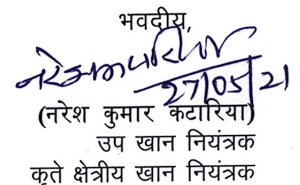 भवदीय,
27/05/21
(नरेश कुमार कटारिया)
उप खान नियंत्रक
कृते क्षेत्रीय खान नियंत्रक